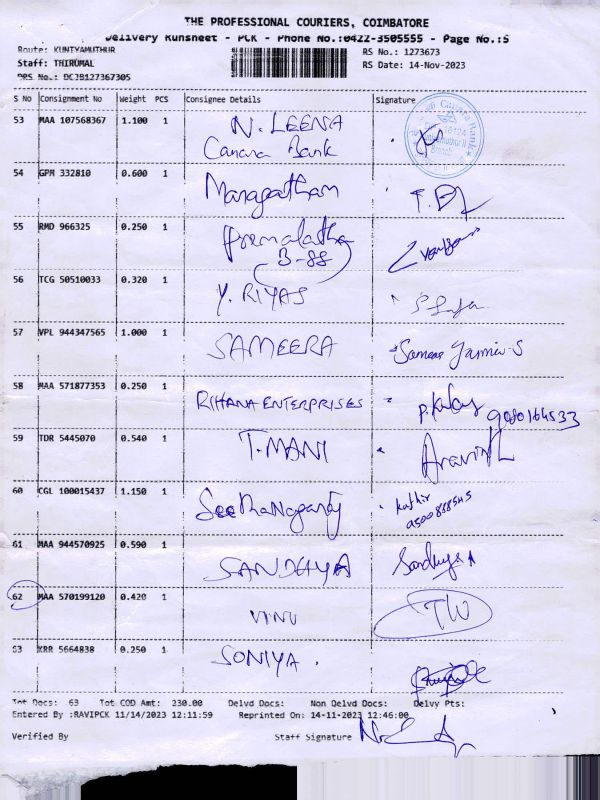 THE PROFESSIONAL COURIERS, COIMBATORE
Delivery Runsheet - PCK - Phone No.:0422-3505555 - Page No.:5
Route: KUNIYAMUTHUR
RS No.: 1273673
Staff: THIRUMAL
RS Date: 14-Nov-2023
DRS No.: DCJB127367305
S No Consignment No Weight PCS Consignee Details Signature
53 MAA 107568367 1.100 1 N. LEENA
Canara Bank
54 GPM 332810 0.600 1 Maragatham
55 RMD 966325 0.250 1 Premalatha
B-88
56 TCG 50510033 0.320 1 Y. RIYAS
57 VPL 944347565 1.000 1 SAMEERA
58 MAA 571877353 0.250 1 RIHANA ENTERPRISES
9080164533
59 TDR 5445070 0.540 1 T. MANI Aravinth
60 CGL 100015437 1.150 1 kathir
61 MAA 944570925 0.590 1 SANDHYA Sandhya
62 MAA 570199120 0.420 1 VINU
63 KRR 5664838 0.250 1 SONIYA.
Tot Docs: 63 Tot COD Amt: 230.00 Delvd Docs: Non Delvd Docs: Delvy Pts:
Entered By :RAVIPCK 11/14/2023 12:11:59 Reprinted On: 14-11-2023 12:46:00
Verified By Staff Signature